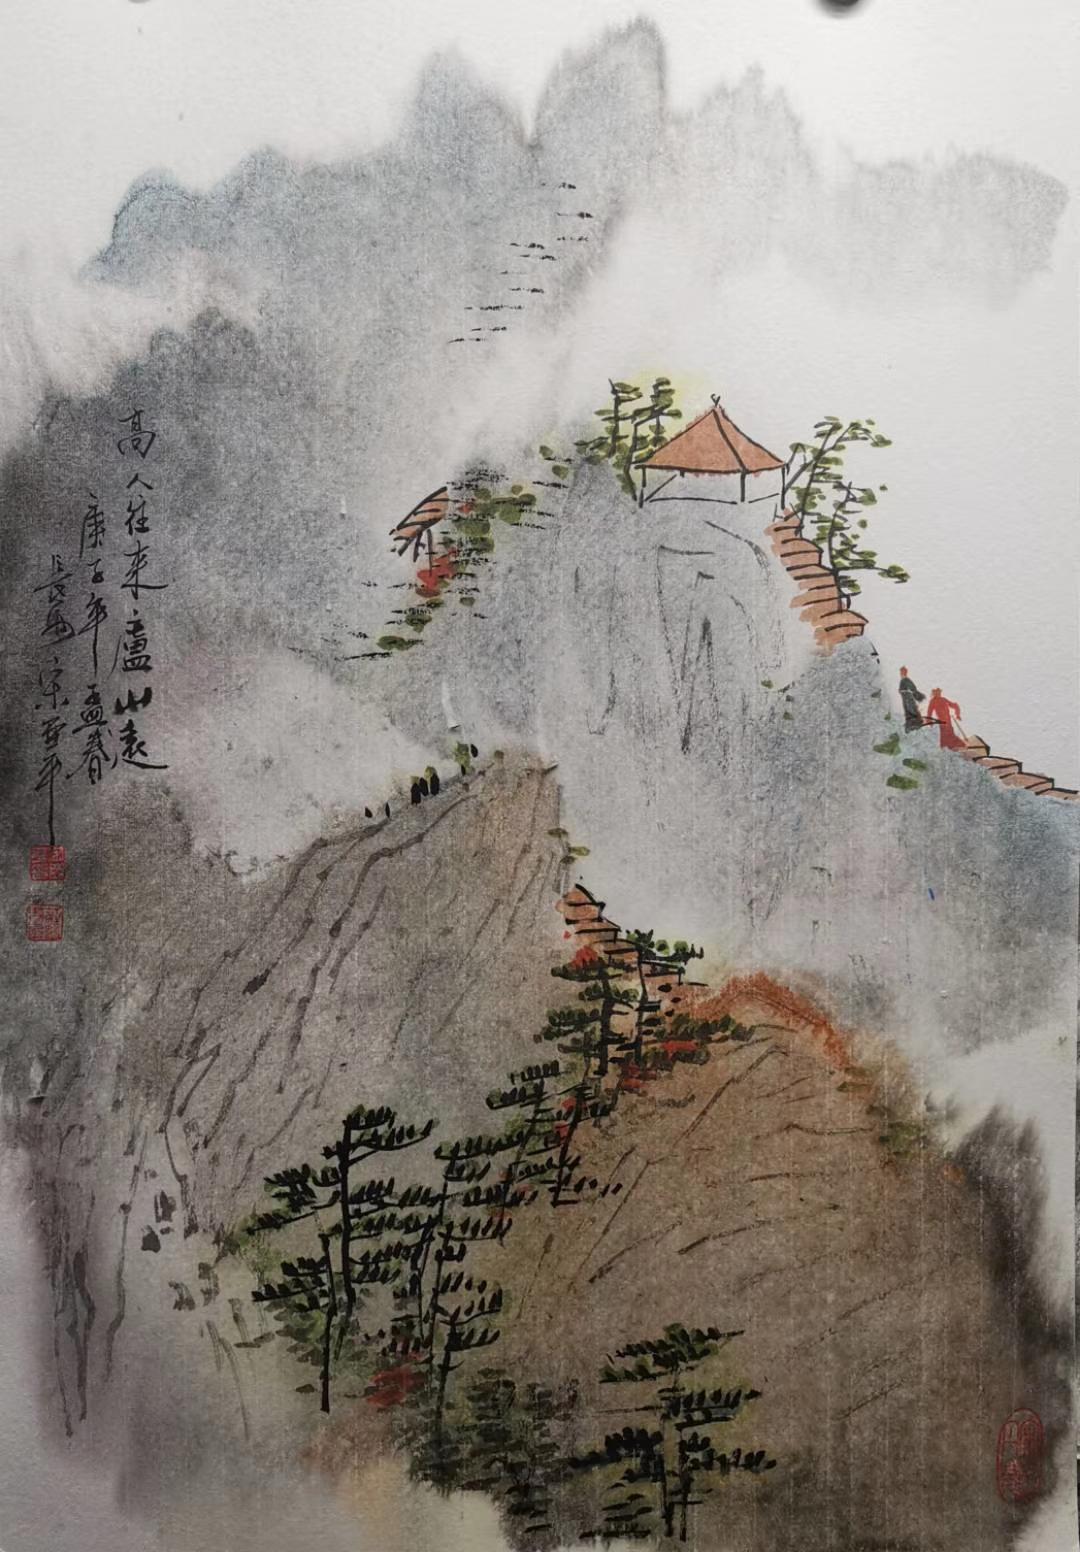 高人往来廬山遠
庚子年孟春
長安宋亚平